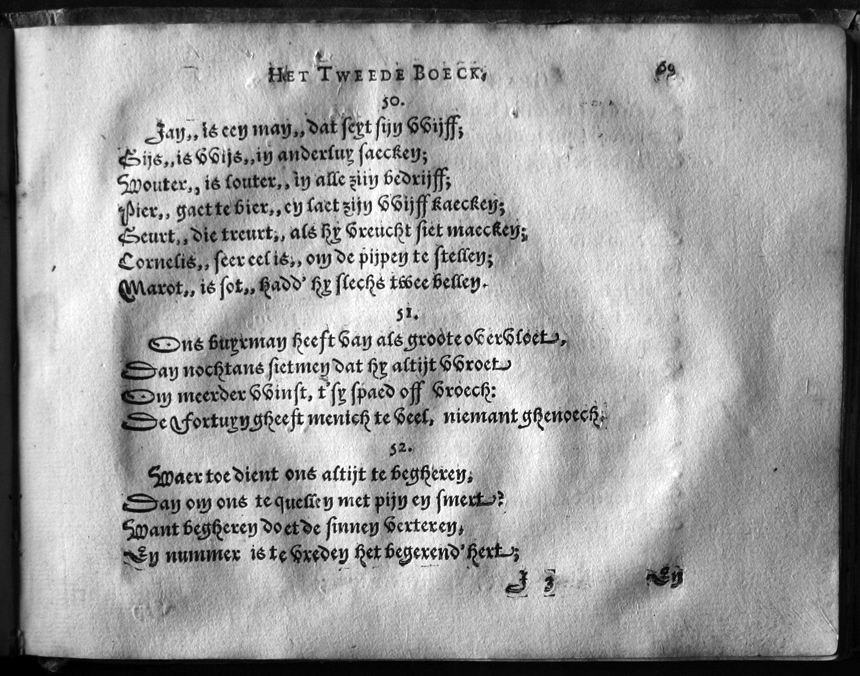 HET TWEEDE BOECK. 69
50.
Jan,, is een man,, dat seyt sijn Wijff;
Gijs,, is Wijs,, in andersluy saecken;
Wouter,, is louter,, in alle zijn bedrijff;
Pier,, gaet te bier,, en laet zijn Wijff kaecken;
Geurt,, die treurt,, als hy vreucht siet maecken;
Cornelis,, seer eel is,, om de pijpen te stellen;
Marot,, is sot,, hadd' hy slechs twee bellen.
51.
Ons buyrman heeft van als groote overvloet,
Dan nochtans sietmen dat hy altijt Wroet
Om meerder Winst, t'sy spaed off vroech:
De Fortuyn gheeft menich te veel, niemant ghenoech.
52.
Waer toe dient ons altijt te begheren,
Dan om ons te quellen met pijn en smert?
Want begheren doet de sinnen verteren,
En nummer is te vreden het begerend' hert;
J 3 En